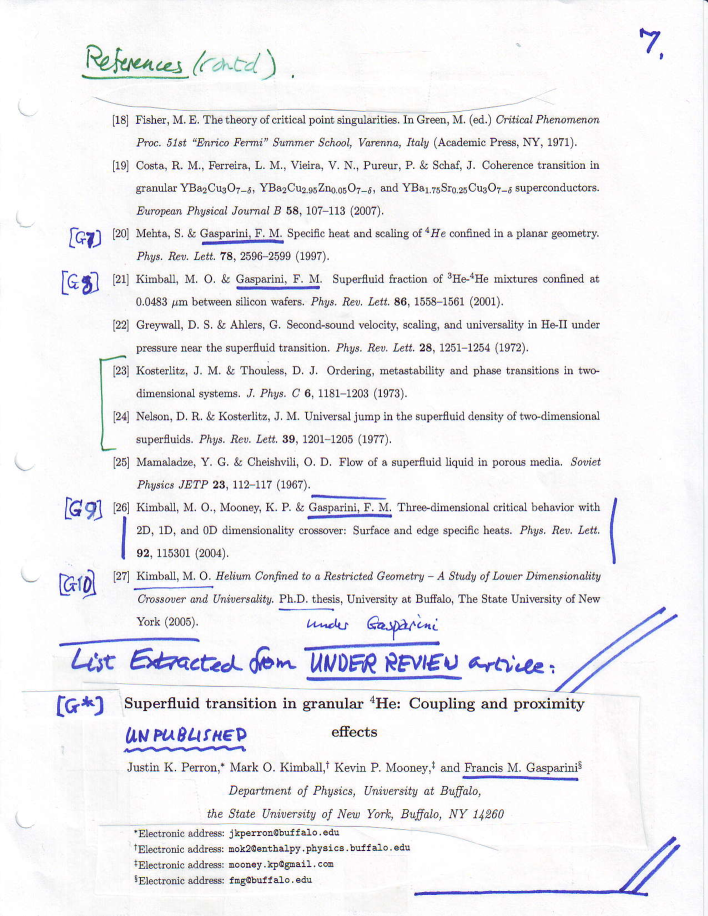 7.
References (contd).
[18] Fisher, M. E. The theory of critical point singularities. In Green, M. (ed.) Critical Phenomenon
Proc. 51st "Enrico Fermi" Summer School, Varenna, Italy (Academic Press, NY, 1971).
[19] Costa, R. M., Ferreira, L. M., Vieira, V. N., Pureur, P. & Schaf, J. Coherence transition in
granular YBa₂Cu₃O₇₋δ, YBa₂Cu₂.₉₅Zn₀.₀₅O₇₋δ, and YBa₁.₇₅Sr₀.₂₅Cu₃O₇₋δ superconductors.
European Physical Journal B 58, 107–113 (2007).
[G7] [20] Mehta, S. & Gasparini, F. M. Specific heat and scaling of ⁴He confined in a planar geometry.
Phys. Rev. Lett. 78, 2596–2599 (1997).
[G8] [21] Kimball, M. O. & Gasparini, F. M. Superfluid fraction of ³He-⁴He mixtures confined at
0.0483 μm between silicon wafers. Phys. Rev. Lett. 86, 1558–1561 (2001).
[22] Greywall, D. S. & Ahlers, G. Second-sound velocity, scaling, and universality in He-II under
pressure near the superfluid transition. Phys. Rev. Lett. 28, 1251–1254 (1972).
[23] Kosterlitz, J. M. & Thouless, D. J. Ordering, metastability and phase transitions in two-
dimensional systems. J. Phys. C 6, 1181–1203 (1973).
[24] Nelson, D. R. & Kosterlitz, J. M. Universal jump in the superfluid density of two-dimensional
superfluids. Phys. Rev. Lett. 39, 1201–1205 (1977).
[25] Mamaladze, Y. G. & Cheishvili, O. D. Flow of a superfluid liquid in porous media. Soviet
Physics JETP 23, 112–117 (1967).
[G9] [26] Kimball, M. O., Mooney, K. P. & Gasparini, F. M. Three-dimensional critical behavior with
2D, 1D, and 0D dimensionality crossover: Surface and edge specific heats. Phys. Rev. Lett.
92, 115301 (2004).
[G10] [27] Kimball, M. O. Helium Confined to a Restricted Geometry – A Study of Lower Dimensionality
Crossover and Universality. Ph.D. thesis, University at Buffalo, The State University of New
York (2005). under Gasparini
List Extracted from UNDER REVIEW article:
[G*] Superfluid transition in granular ⁴He: Coupling and proximity
UNPUBLISHED effects
Justin K. Perron,* Mark O. Kimball,† Kevin P. Mooney,‡ and Francis M. Gasparini§
Department of Physics, University at Buffalo,
the State University of New York, Buffalo, NY 14260
*Electronic address: jkperron@buffalo.edu
†Electronic address: mok2@enthalpy.physics.buffalo.edu
‡Electronic address: mooney.kp@gmail.com
§Electronic address: fmg@buffalo.edu